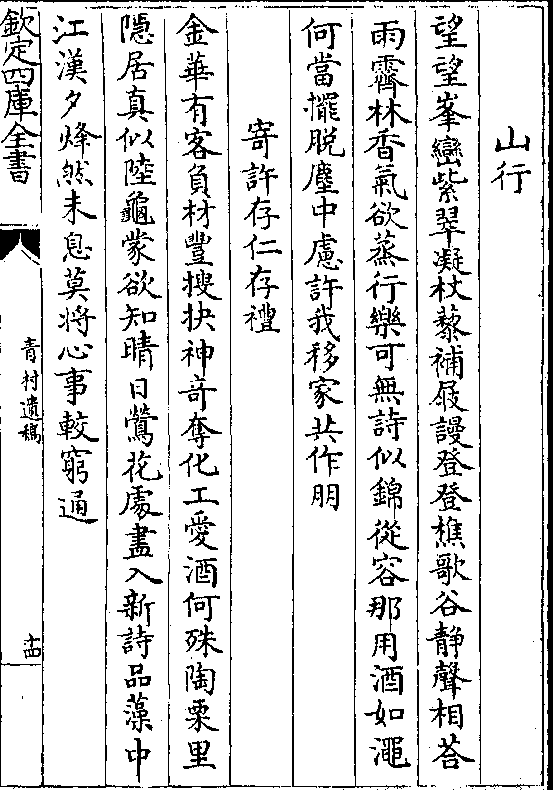 山行
望望峯巒紫翠凝杖藜補屐謾登登樵歌谷静聲相荅
雨霽林香氣欲蒸行樂可無詩似錦從容那用酒如澠
何當擺脱塵中慮許我移家共作朋
寄許存仁存禮
金華有客負材豐搜抉神竒奪化工愛酒何殊陶栗里
隠居真似陸龜蒙欲知晴日鶯花處盡入新詩品藻中
江漢夕烽然未息莫將心事較窮通
欽定四庫全書
青村遺稿
十四